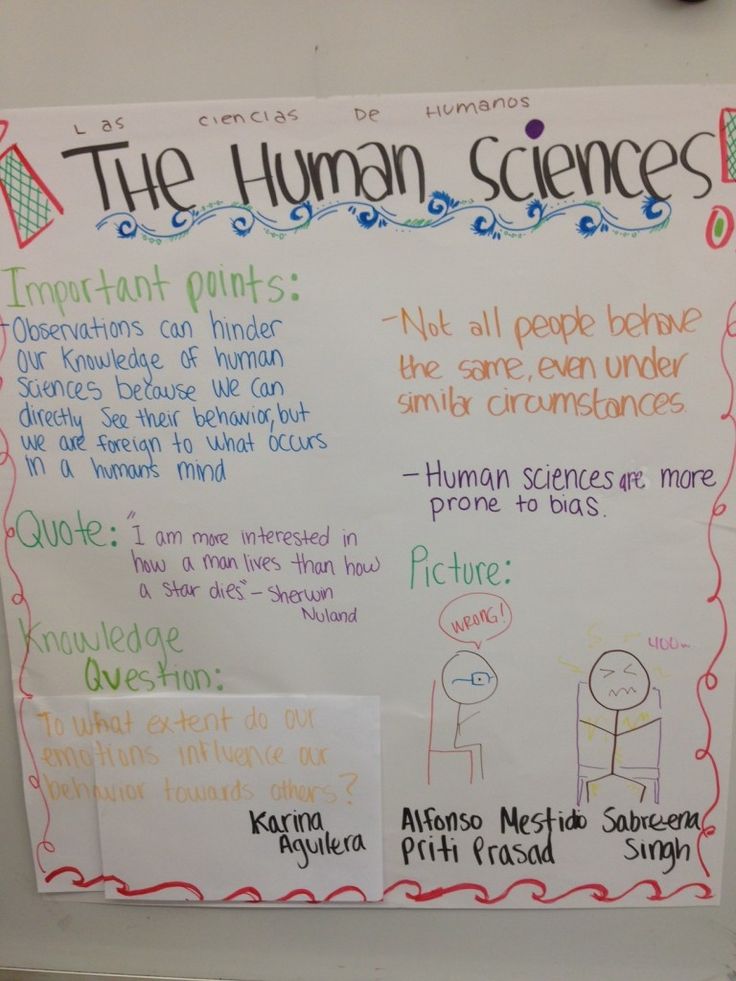 Las Ciencias De Humanos
The Human Sciences
Important points:
- Observations can hinder
our knowledge of human
sciences because we can
directly see their behavior, but
we are foreign to what occurs
in a humans mind
- Not all people behave
the same, even under
similar circumstances.
- Human sciences are more
prone to bias.
Quote: "I am more interested in
how a man lives than how
a star dies" - Sherwin
Nuland
Knowledge
Question:
To what extent do our
emotions influence our
behavior towards others?
Karina
Aguilera
Picture:
WRONG!
Alfonso Mestidio Sabreena
Priti Prasad Singh